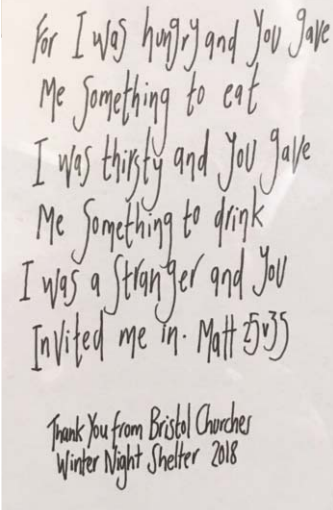 For I was hungry and You gave
Me Something to eat
I was thirsty and You gave
Me Something to drink
I was a Stranger and You
Invited me in. Matt 25v35
Thank You from Bristol Churches
Winter Night Shelter 2018